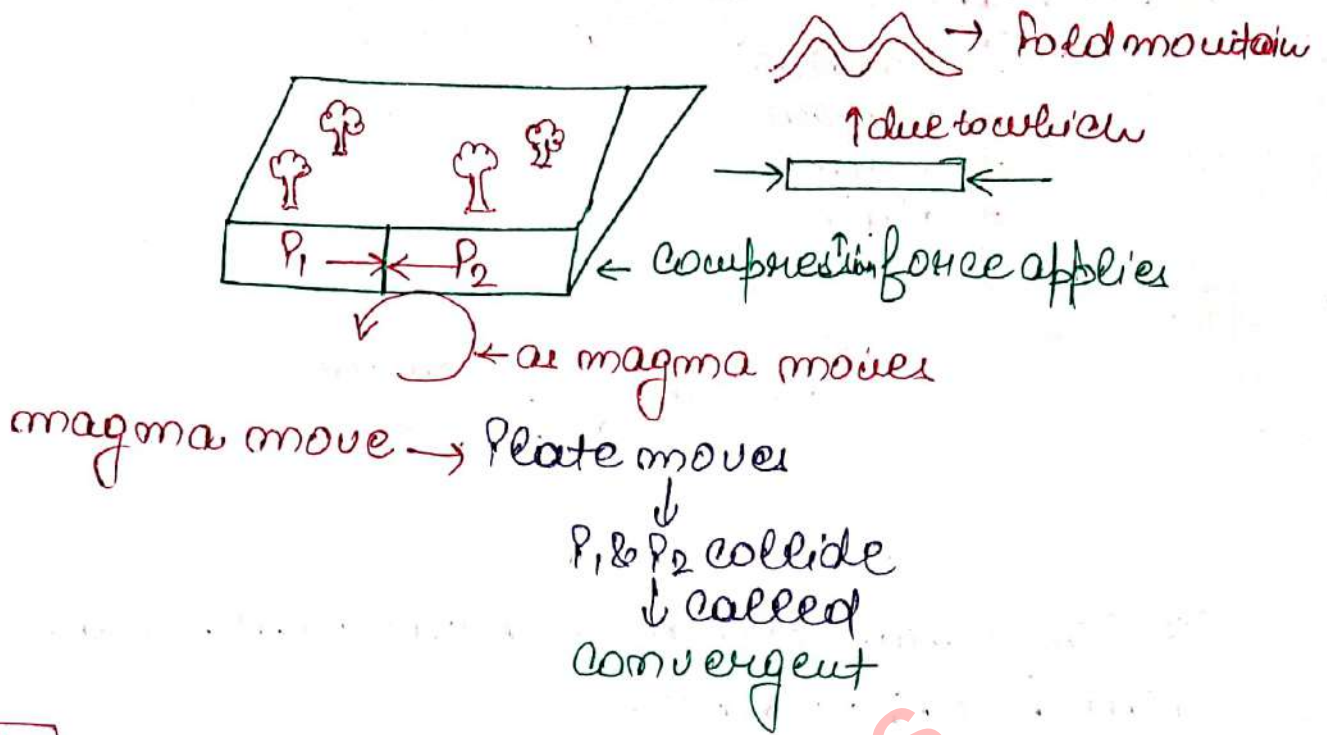 → Fold mountain
↑ due to which
P₁ → ← P₂
← compression force applies
← as magma moves
magma move → Plate moves
↓
P₁ & P₂ collide
↓ called
convergent